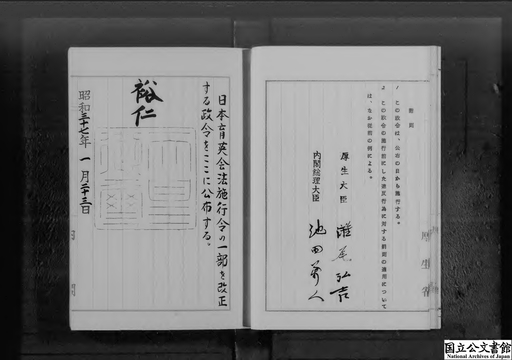 附則
1 この政令は、公布の日から施行する。
2 この政令の施行前にした違反行為に対する罰則の適用について
は、なお従前の例による。
厚生大臣 灘尾弘吉
内閣総理大臣 池田勇人
厚生省
日本育英会法施行令の一部を改正
する政令をここに公布する。
裕仁
昭和三十七年一月二十三日
国立公文書館
National Archives of Japan